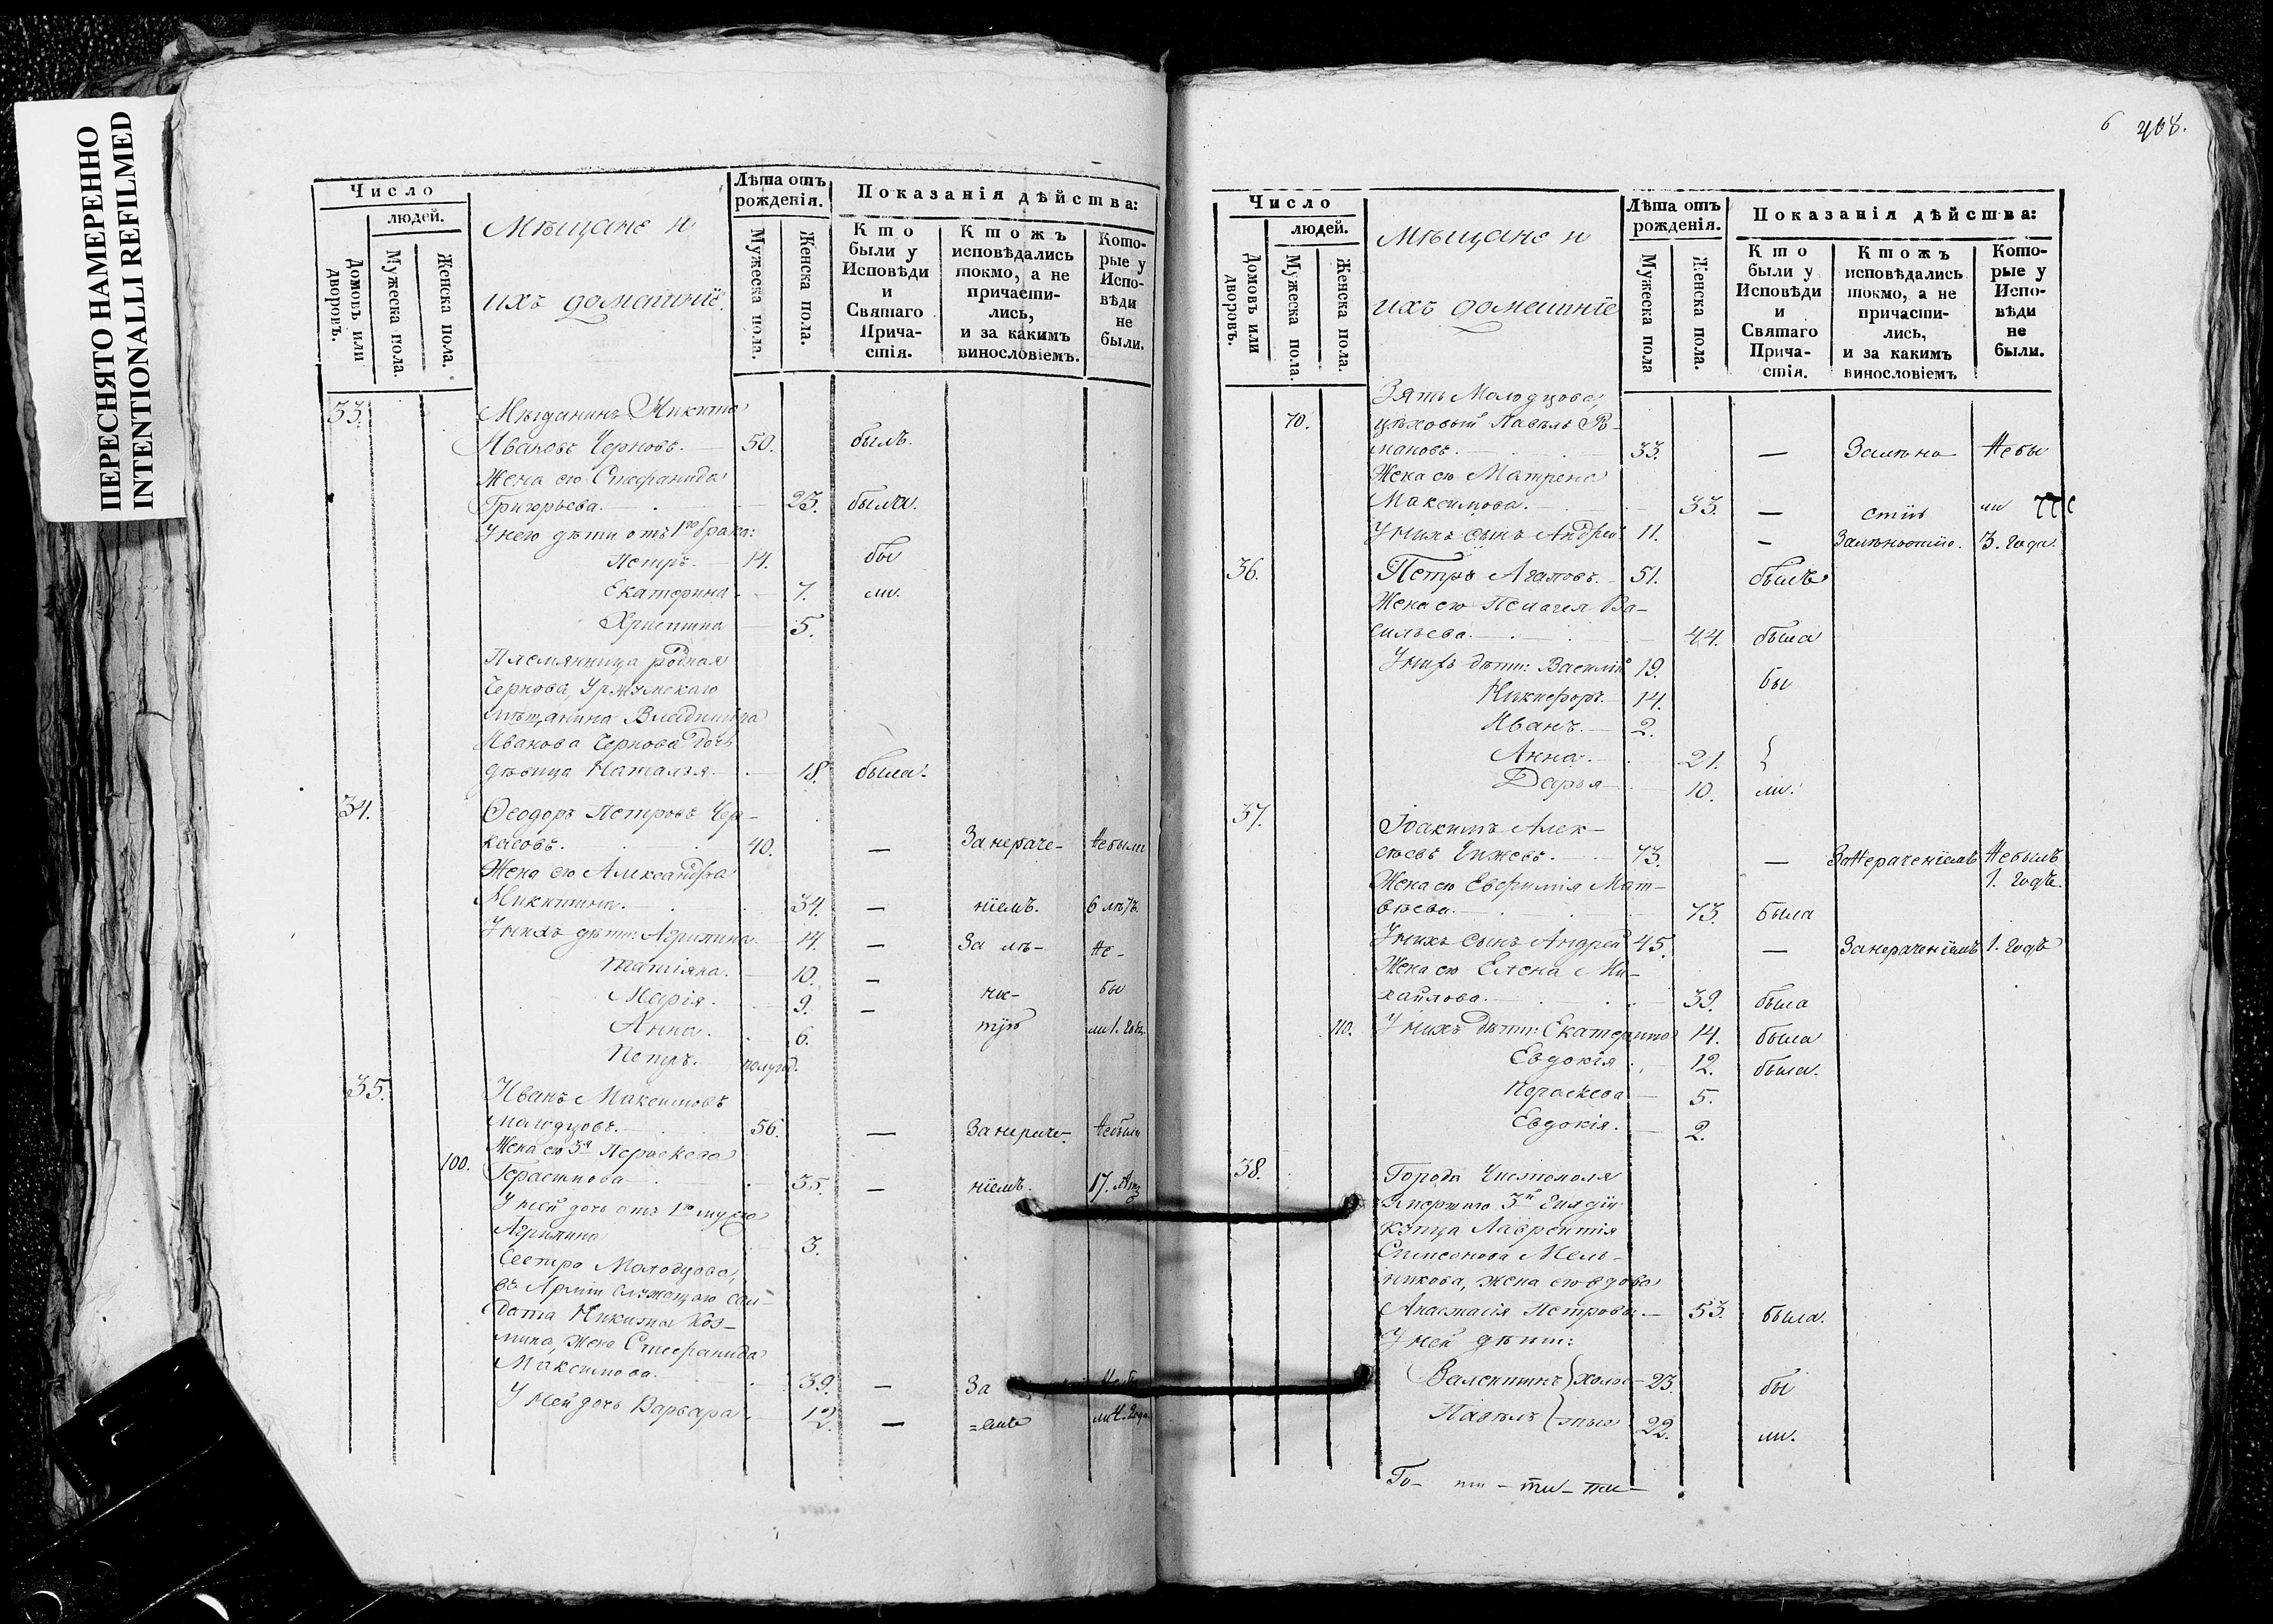 ПЕРЕСНЯТО НАМЕРЕННО
INTENTIONALLI REFILMED
Число
людей.
Домовъ или дворовъ.
Мужеска пола.
Женска пола.
Мѣщане и
ихъ домашніе.
Лѣта отъ рожденія.
Мужеска пола.
Женска пола.
Показанія дѣйства:
Кто были у Исповѣди и Святаго Прича-стія.
Ктожъ исповѣдались токмо, а не причасти-лись, и за какимъ винословіемъ.
Кото-рые у Испо-вѣди не были.
33. Мѣщанинъ Никита
Ивановъ Черновъ. 50. былъ.
Жена его Стефанида
Григорьева. 23. была.
У него дѣти отъ 1го брака:
Петръ. 14. бы
Екатерина 7. ли.
Христина 5.
Племянница родная
Чернова, Уржумскаго
мѣщанина Владимира
Иванова Чернова дочь
дѣвица Наталья. 18. была.
34. Ѳеодоръ Петровъ Чер-
касовъ. 40. — За нераче- Небыли
Жена его Александра
Никитина. 34. — ніемъ. 6 лѣтъ.
У нихъ дѣти: Агрипина 14. — За лѣ- Не-
Татіяна. 10. — бы
Марія. 9. —
Анна. 6. ли 1. годъ
Петръ. полугод.
35. Иванъ Максимовъ
Молодцовъ. 56. — За нераче- Небыли
Жена его 3я Параскева
100. Герасимова 35. — ніемъ. 17. лѣтъ
У ней дочь отъ 1го мужа
Агрипина 3.
Сестра Молодцова,
въ Арміи служащаго сол-
дата Никиты Коз-
мина, жена Стефанида
Максимова. 39. — За
У ней дочь Варвара. 12. — ли 4. года
6 408.
Число
людей.
Домовъ или дворовъ.
Мужеска пола.
Женска пола.
Мѣщане и
ихъ домашніе
Лѣта отъ рожденія.
Мужеска пола
Женска пола.
Показанія дѣйства:
Кто были у Исповѣди и Святаго Прича-стія.
Ктожъ исповѣдались токмо, а не причасти-лись, и за какимъ винословіемъ
Кото-рые у Испо-вѣди не были.
Зять Молодцова,
70. цѣховый Павелъ Ро-
мановъ. 33. — Не бы
Жена его Матрена
Максимова. 33. — ли
У нихъ сынъ Андрей 11. — 3. года.
36. Петръ Агаповъ. 51. былъ
Жена его Пелагея Ва-
сильева. 44. была
У нихъ дѣти: Василій 19. бы
Никифоръ. 14.
Иванъ. 2.
Анна. 21.
Дарья 10. ли.
37. Іоакимъ Алек-
сѣевъ Чижевъ. 73. — За нераченіемъ Небылъ
1. годъ.
Жена его Евфимія Мат-
вѣева. 73. была
У нихъ сынъ Андрей 45. — За нераченіемъ 1. годъ
Жена его Елена Ми-
хайлова. 39. была
110. У нихъ дѣти: Екатерина 14. была
Евдокія 12. была.
Параскева 5.
Евдокія. 2.
38. Города Чистополя
умершаго 3й Гилдіи
купца Лаврентія
Симеонова Мель-
никова, жена его вдова
Анастасія Петрова. 53. была.
У ней дѣти:
Валентинъ } холос- 23. бы
Павелъ } тые 22. ли.